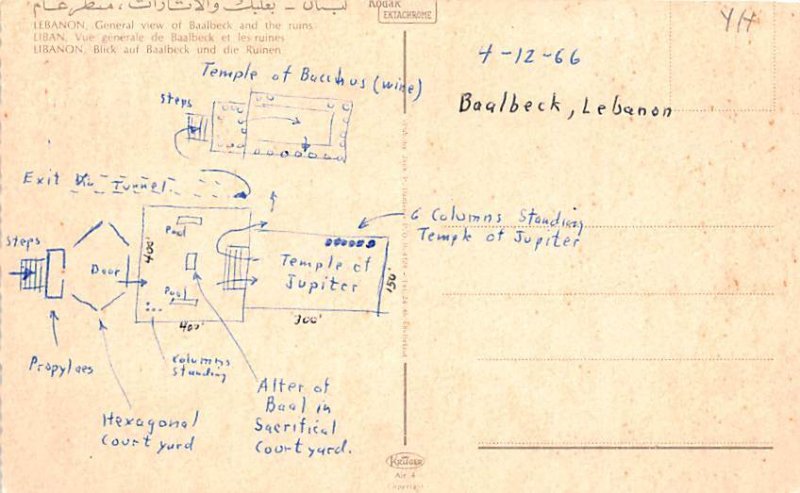 لبنان - بعلبك والآثارات، منظر عام
Kodak
EKTACHROME
LEBANON, General view of Baalbeck and the ruins
LIBAN, Vue générale de Baalbeck et les ruines
LIBANON, Blick auf Baalbeck und die Ruinen
4-12-66
Baalbeck, Lebanon
Temple of Bacchus (wine)
steps
Exit Via Tunnel
6 Columns Standing
Temple of Jupiter
steps
Door
Pool
400'
Pool
400'
Temple of
Jupiter
150'
300'
Propylaes
Columns
Standing
Hexagonal
Court yard
Alter of
Baal in
Sacrifical
Court yard.
KRÜGER